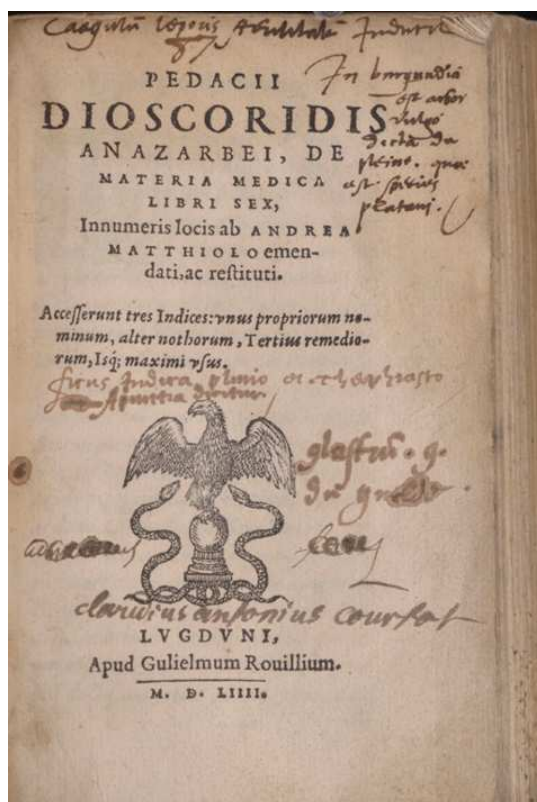 Coagulū leporis
In burgundia
est arbor
vulgo
dicta du
pleine. quæ
est species
platani.
PEDACII
DIOSCORIDIS
ANAZARBEI, DE
MATERIA MEDICA
LIBRI SEX,
Innumeris locis ab ANDREA
MATTHIOLO emen-
dati, ac reſtituti.
Acceſſerunt tres Indices: vnus propriorum no-
minum, alter nothorum, Tertius remedio-
rum, Isq́; maximi vſus.
ficus Indica plinio et theophrasto
glastū. g.
du
claudius antonius courtot
LVGDVNI,
Apud Gulielmum Rouillium.
M. D. LIIII.